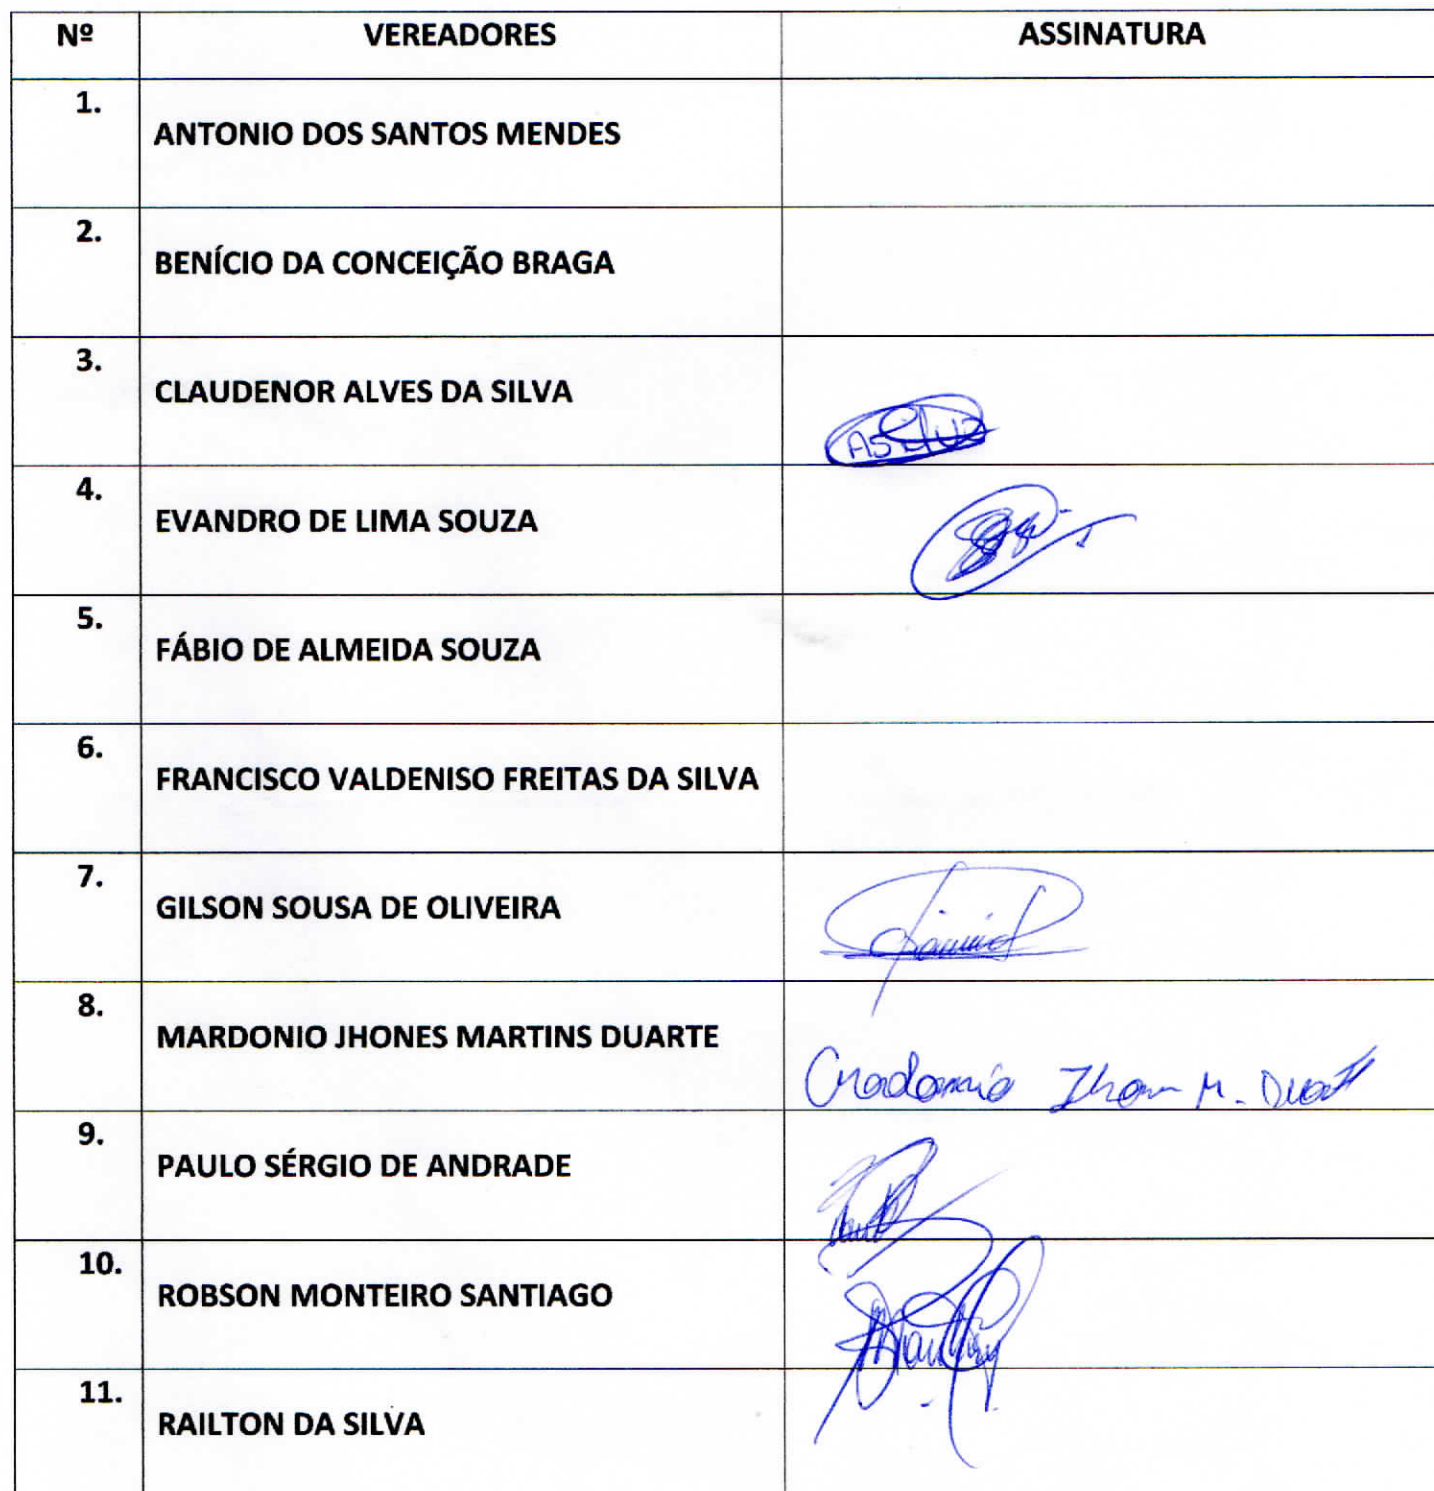 Nº VEREADORES ASSINATURA
1. ANTONIO DOS SANTOS MENDES
2. BENÍCIO DA CONCEIÇÃO BRAGA
3. CLAUDENOR ALVES DA SILVA
4. EVANDRO DE LIMA SOUZA
5. FÁBIO DE ALMEIDA SOUZA
6. FRANCISCO VALDENISO FREITAS DA SILVA
7. GILSON SOUSA DE OLIVEIRA
8. MARDONIO JHONES MARTINS DUARTE
M.
9. PAULO SÉRGIO DE ANDRADE
10. ROBSON MONTEIRO SANTIAGO
11. RAILTON DA SILVA